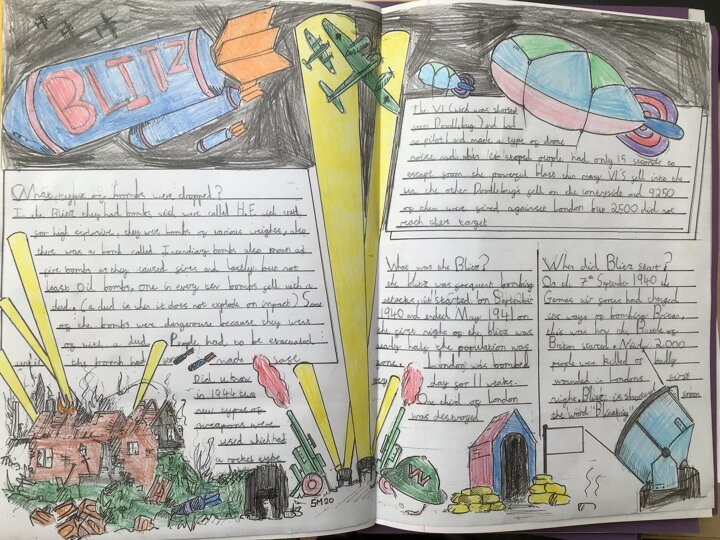 BLITZ
What types of bombs were dropped?
In the Blitz they had bombs wich were called H.E wich used
for high explosive, they were bombs of various weights, also
there was a bomb called Incendiary bombs also known as
fire bombs as they caused fires and lastly but not
least Oil bombs. One in every ten bombs fell with a
dud. (a dud is when it does not explode on impact) Some
of the bombs were dangerous because they went
of with a dud. People had to be evacuated
until the bomb had made safe
Did u know
in 1944 two
new types of
weapons were
used which had
a rocket
5M20
The V1 (wich was
soon Doodlebug) and had
no pilot and made a type of drone
noise and when it stoped people had only 15 seconds to
escape from the powerful blast thou many V1's fell into the
sea the other Doodlebug's fell on the contryside and 9250
of them were fired against london but 2500 did not
reach their target
What was the Blitz?
the blitz was frequent bombing
attacks, it started on September
(1940 and ended May 1941) on
the first night of the blitz was
nearly half the population was
gone. London was bombed
every day for 11 weaks.
One third of London
was destroyed
When did Blitz start?
On the 7th September 1940 the
German air forces had changed
the ways of bombing Britan,
this was how the Battle of
Britan started. Nearly 2,000
people were killed or badly
wounded in Londons first
night. Blitz is shorted from
the word "Blitzkrieg"
W